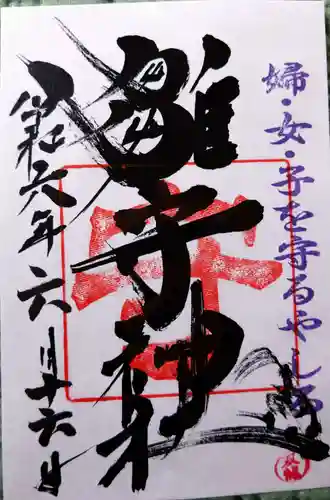 婦・女・子を守るやしろ
雛子神社
令和六年六月十六日